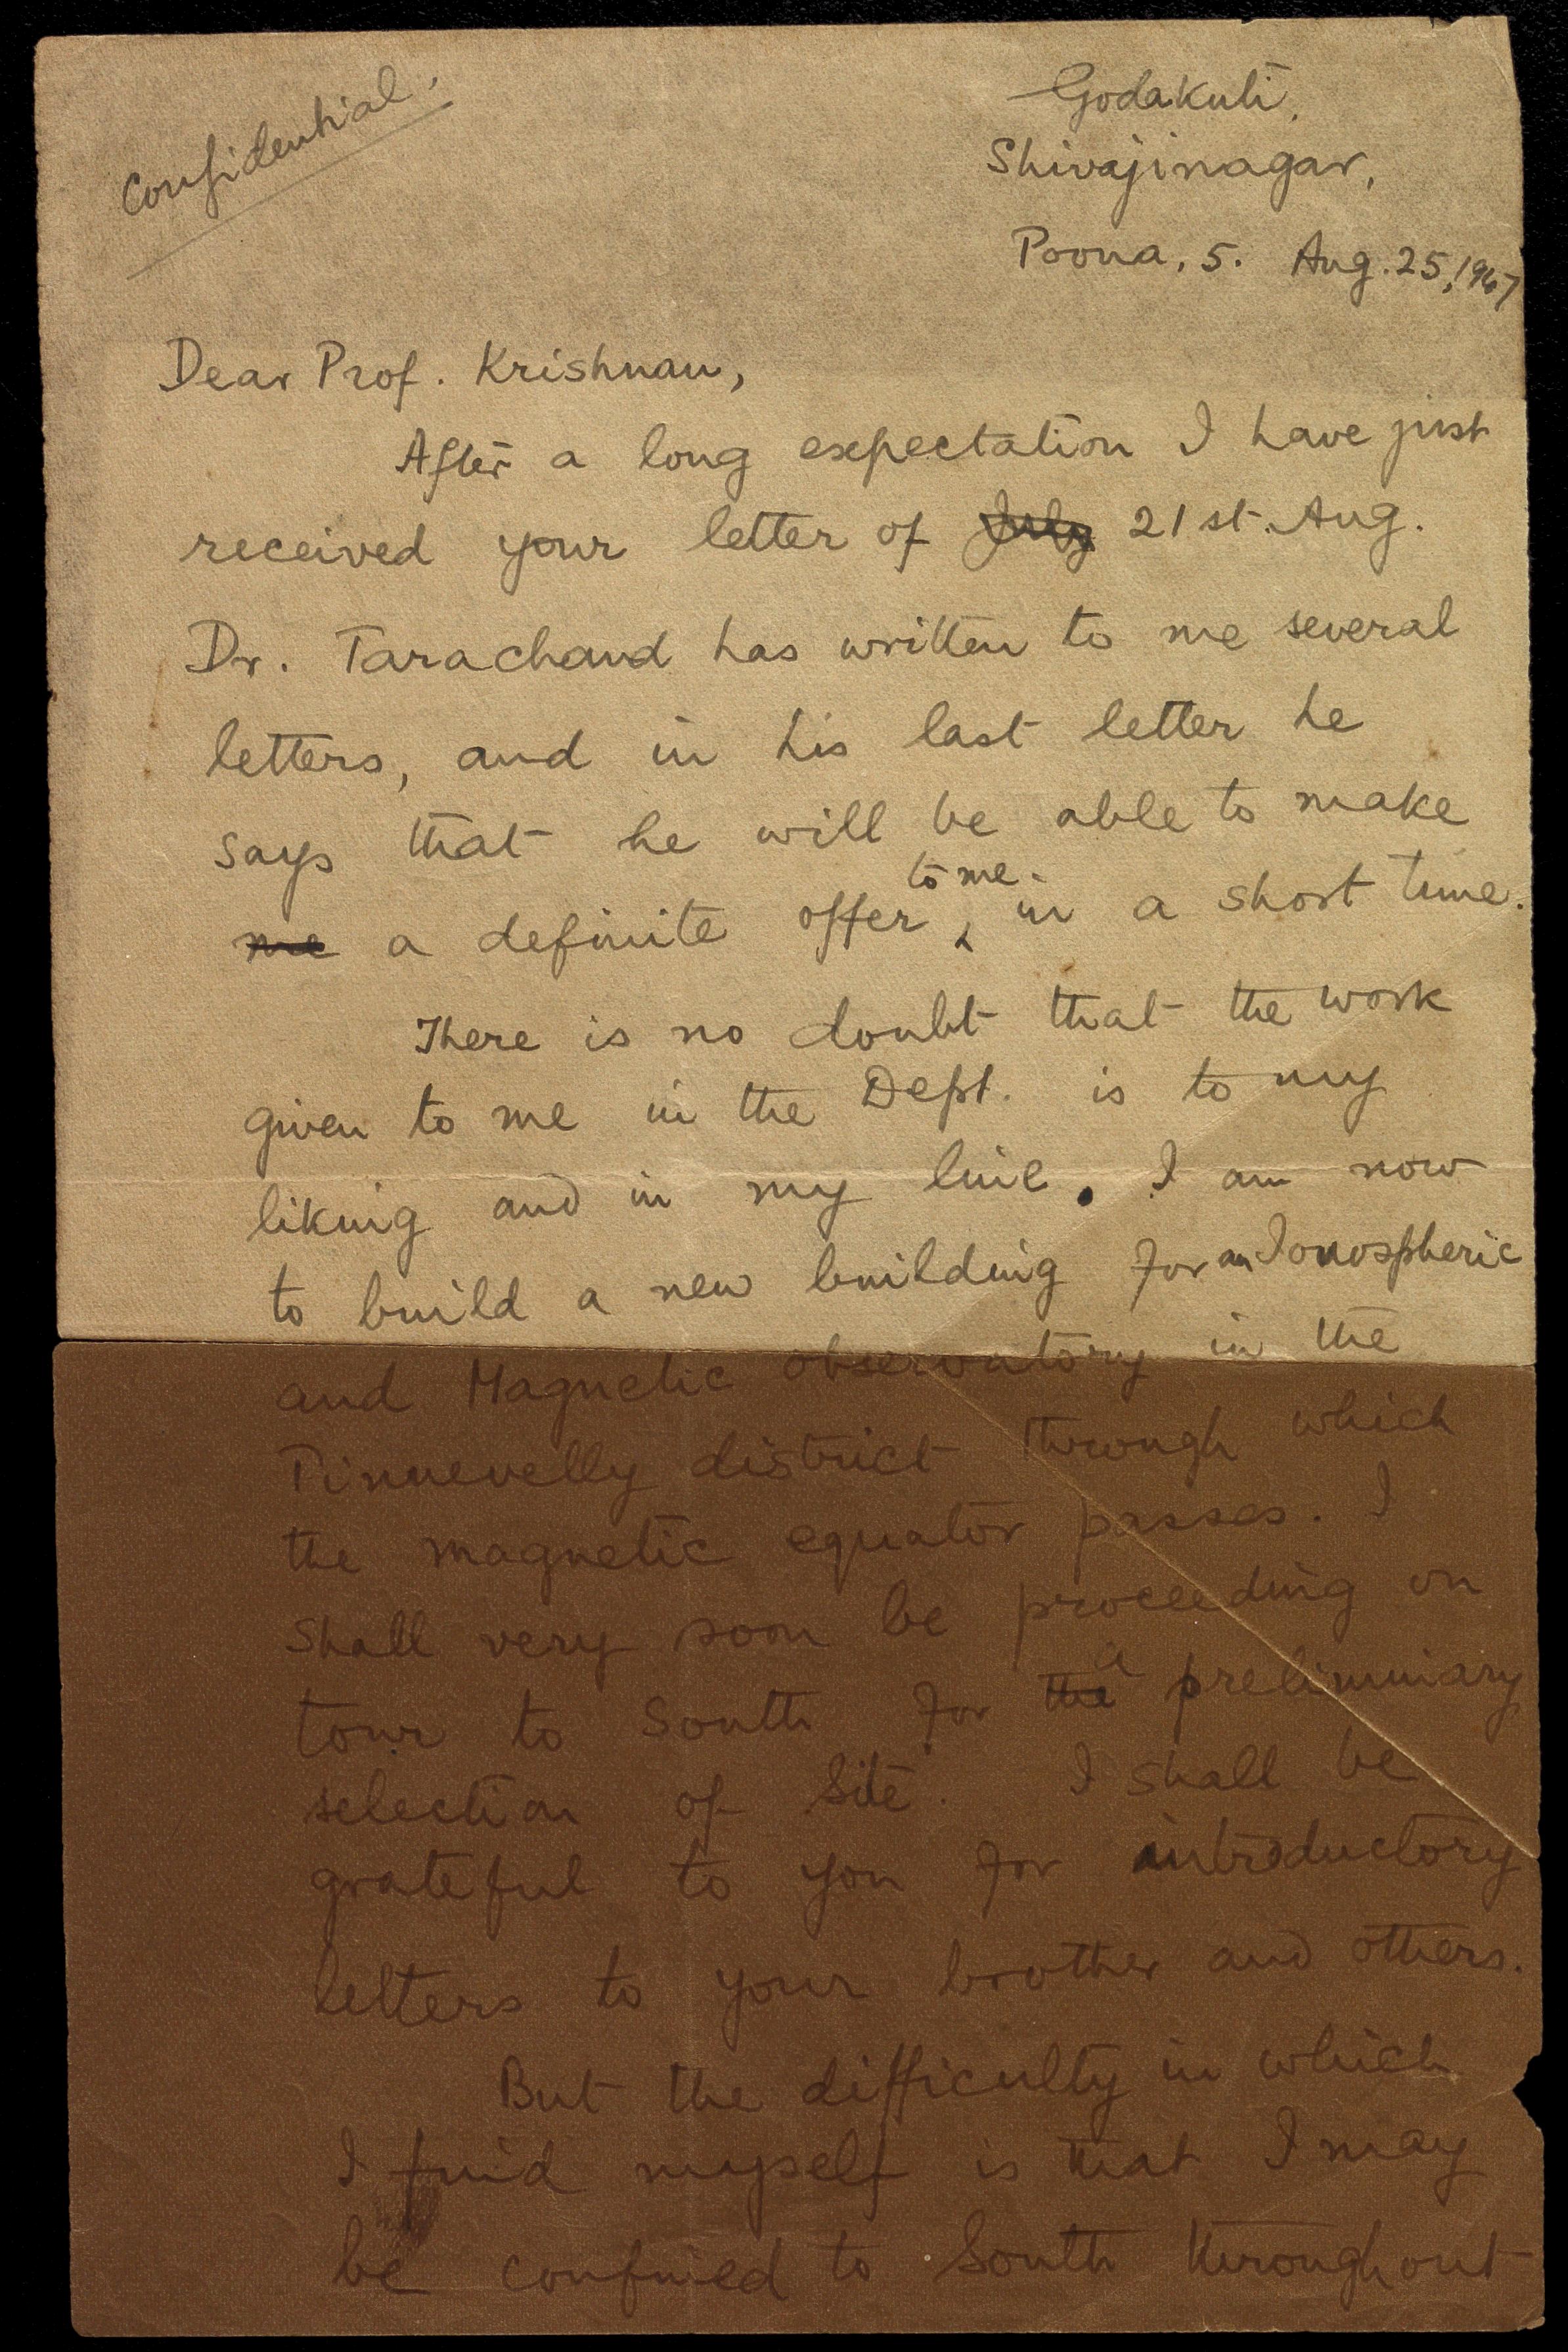 Confidential.
Godakuti,
Shivajinagar,
Poona, 5. Aug. 25, 1947
Dear Prof. Krishnan,
After a long expectation I have just
received your letter of July 21st. Aug.
Dr. Tarachand has written to me several
letters, and in his last letter he
says that he will be able to make
me a definite offer to me in a short time.
There is no doubt that the work
given to me in the Dept. is to my
liking and in my line. I am now
to build a new building for an Ionospheric
and Magnetic observatory in the
Tinnevelly district through which
the magnetic equator passes. I
shall very soon be proceeding on
tour to South for the a preliminary
selection of site. I shall be
grateful to you for introductory
letters to your brother and others.
But the difficulty in which
I find myself is that I may
be confined to South throughout